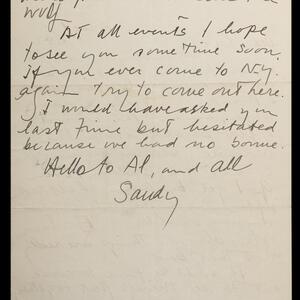 way
At all events I hope
to see you some time soon.
If you ever come to N.Y.
again try to come out here.
I would have asked you
last time but hesitated
because we had no
Hello to Al, and all
Sandy